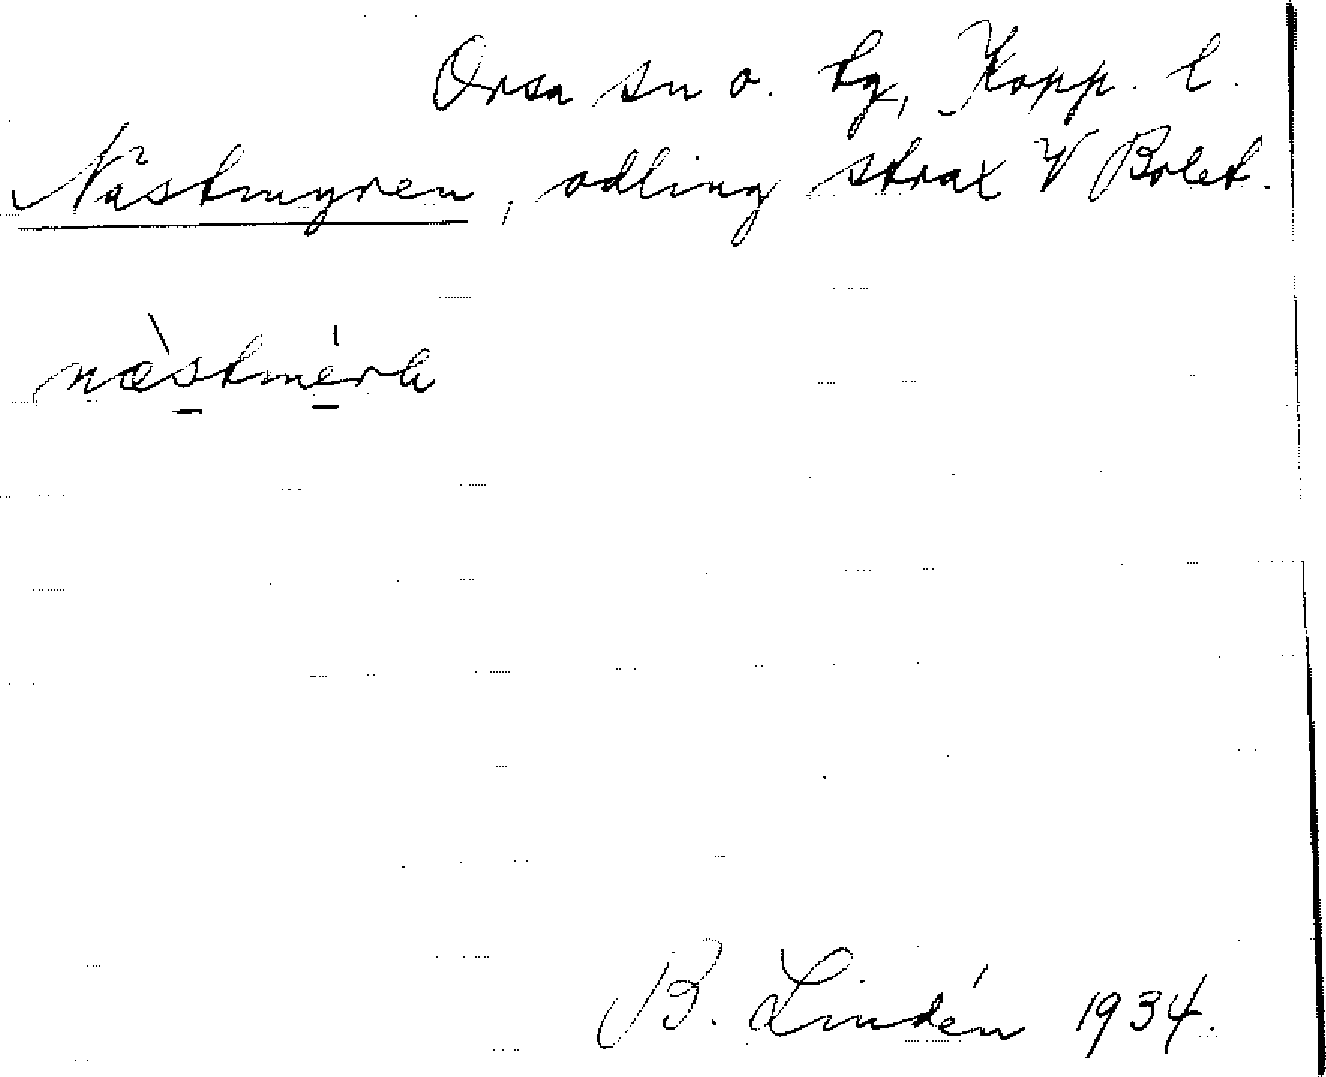 Orsa sn o. hg, Kopp. l.
Nästmyren, odling strax V Bolet.
næ̀stmė́rα
B. Lindén 1934.